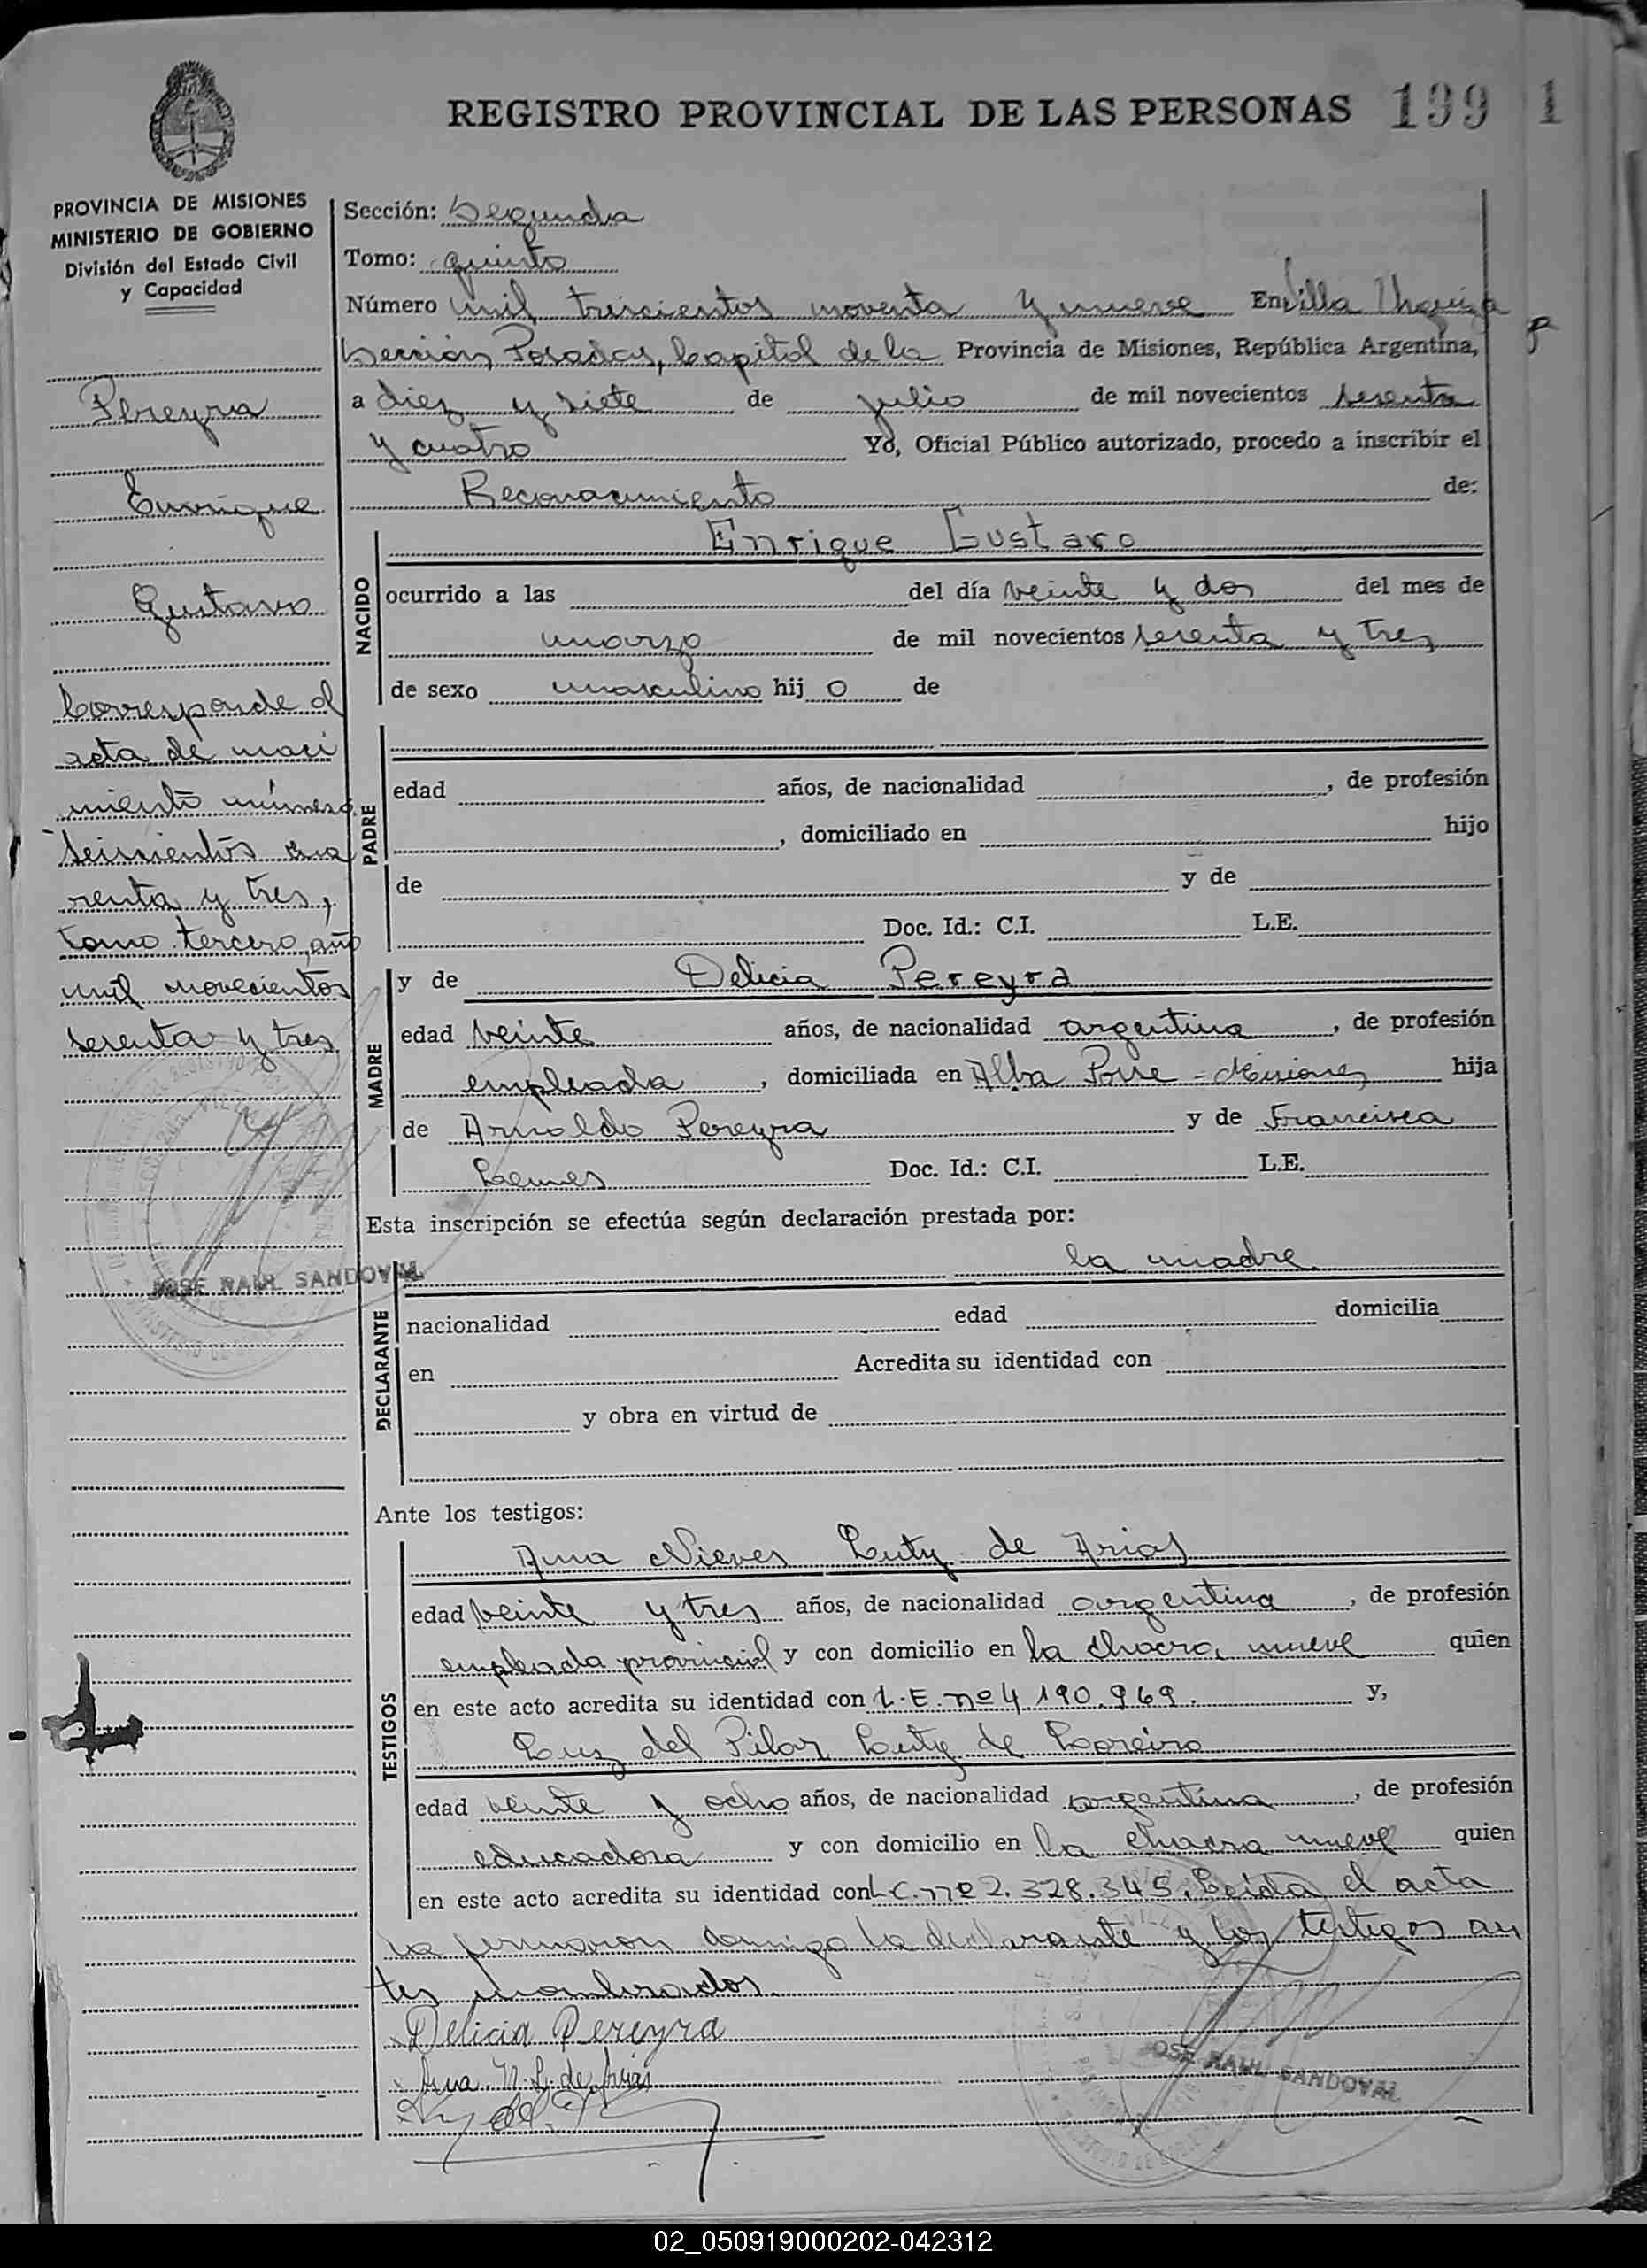 REGISTRO PROVINCIAL DE LAS PERSONAS 199 1
PROVINCIA DE MISIONES
MINISTERIO DE GOBIERNO
División del Estado Civil
y Capacidad
Pereyra
Enrique
Gustavo
Corresponde al
acta de naci
miento número
seiscientos cua
renta y tres,
tomo tercero, año
mil novecientos
sesenta y tres
JOSE RAUL SANDOVAL
Sección: Segunda
Tomo: quinto
Número mil trescientos noventa y nueve En Villa Urquiza
Sección Posadas, Capital de la Provincia de Misiones, República Argentina,
a diez y siete de julio de mil novecientos sesenta
y cuatro Yo, Oficial Público autorizado, procedo a inscribir el
Reconocimiento de:
NACIDO
Enrique Gustavo
ocurrido a las del día veinte y dos del mes de
marzo de mil novecientos sesenta y tres
de sexo masculino hij o de
PADRE
edad años, de nacionalidad , de profesión
, domiciliado en hijo
de y de
Doc. Id.: C.I. L.E.
MADRE
y de Delicia Pereyra
edad veinte años, de nacionalidad argentina , de profesión
empleada , domiciliada en Alba Posse - Misiones hija
de Arnoldo Pereyra y de Francisca
Lemes Doc. Id.: C.I. L.E.
Esta inscripción se efectúa según declaración prestada por:
la madre
DECLARANTE
nacionalidad edad domicilia
en Acredita su identidad con
y obra en virtud de
Ante los testigos:
TESTIGOS
Ana Nieves Luty de Arias
edad veinte y tres años, de nacionalidad argentina , de profesión
empleada provincial y con domicilio en la chacra nueve quien
en este acto acredita su identidad con L.E. nº 4.190.969. y,
Luz del Pilar Luty de
edad veinte y ocho años, de nacionalidad argentina , de profesión
educadora y con domicilio en la chacra nueve quien
en este acto acredita su identidad con L.C. nº 2.328.345. Leida el acta
la firmaron conmigo la declarante y los testigos an
tes nombrados.
Delicia Pereyra
Ana. N. L. de Arias
JOSE RAUL SANDOVAL
02_050919000202-042312